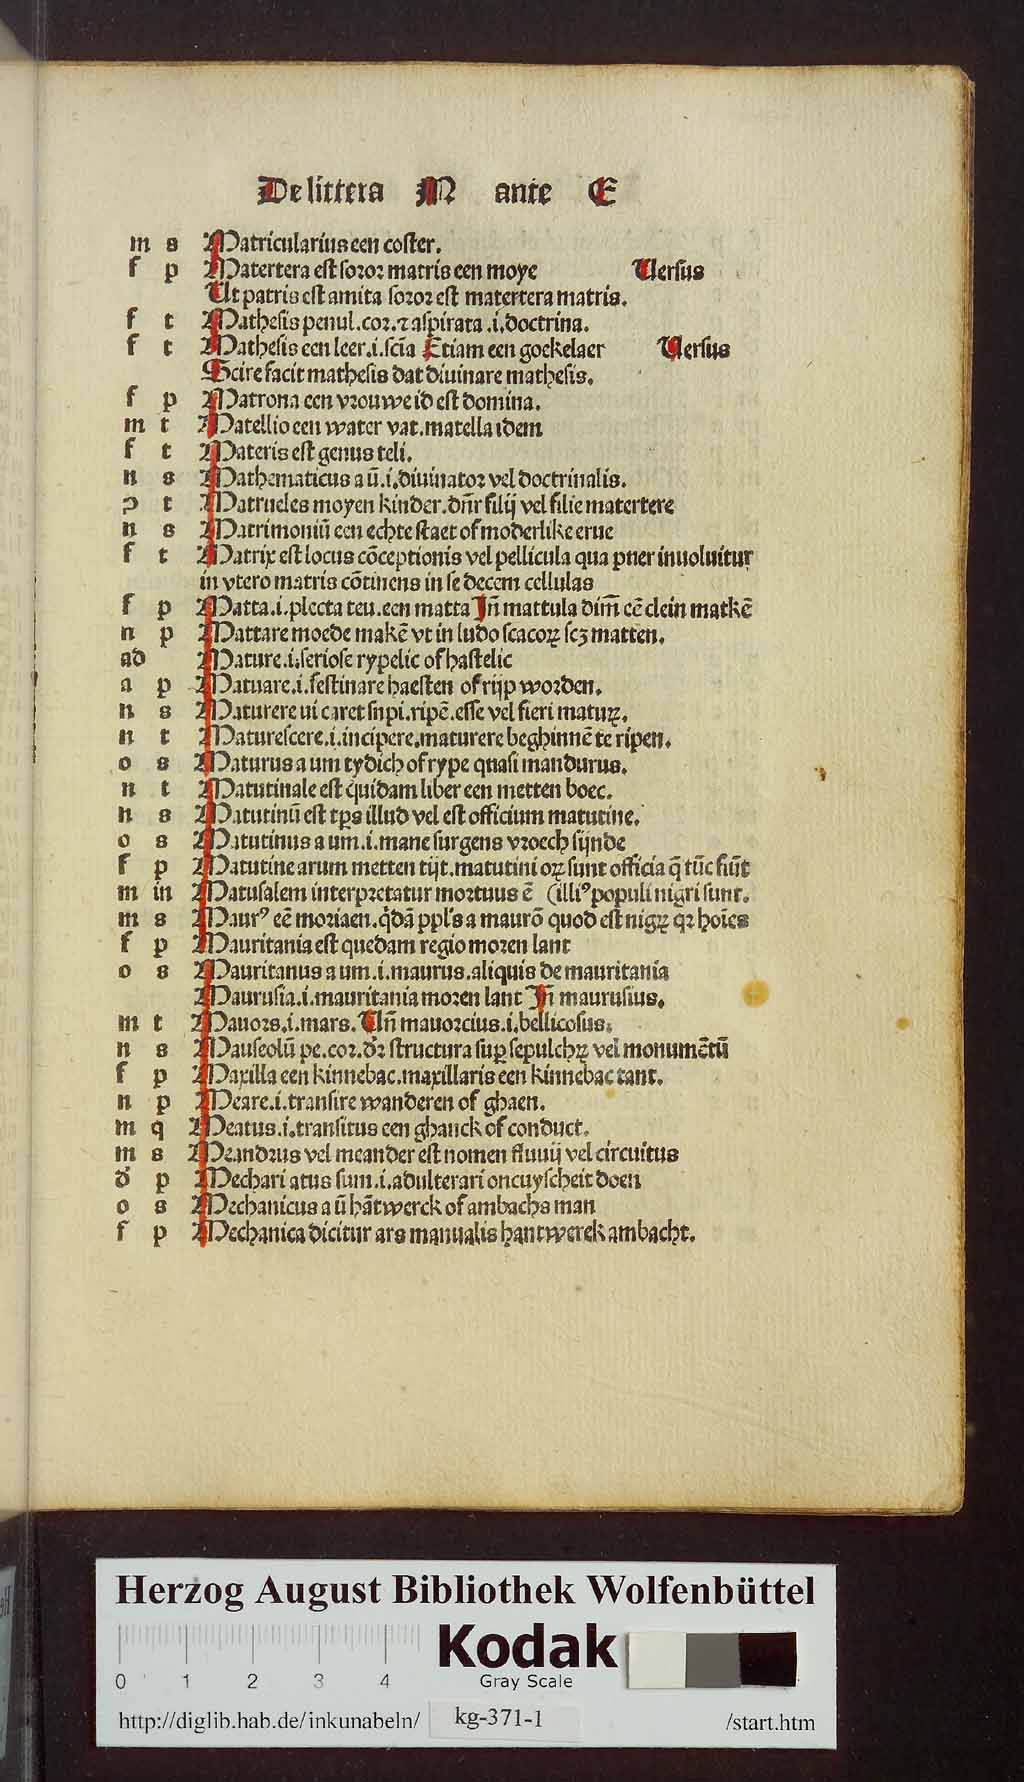 De littera M ante E
m s Matricularius een coster.
f p Matertera est soror matris een moye Versus
Ut patris est amita soror est matertera matris.
f t Mathesis penul. cor. ⁊ aspirata .i. doctrina.
f t Mathesis een leer .i. scīa Etiam een goekelaer Versus
Scire facit mathesis dat diuinare mathesis.
f p Matrona een vrouwe id est domina.
m t Matellio een water vat. matella idem
f t Materis est genus teli.
n s Mathematicus a ū .i. diuinator vel doctrinalis.
ɔ t Matrueles moyen kinder. dn̄r filij vel filie matertere
n s Matrimoniū een echte staet of moderlike erue
f t Matrix est locus cōceptionis vel pellicula qua puer inuoluitur
in vtero matris cōtinens in se decem cellulas
f p Matta .i. plecta teu. een matta Jn̄ mattula dim̄ cē clein matkē
n p Mattare moede makē vt in ludo scacoꝝ scꝫ matten.
ad Mature .i. seriose rypelic of hastelic
a p Matuare .i. festinare haesten of rijp worden.
n s Maturere ui caret supi. ripē. esse vel fieri matuꝝ.
n t Maturescere .i. incipere. maturere beghinnē te ripen.
o s Maturus a um tydich of rype quasi mandurus.
n t Matutinale est quidam liber een metten boec.
n s Matutinū est tp̄s illud vel est officium matutine.
o s Matutinus a um .i. mane surgens vroech sijnde
f p Matutine arum metten tijt. matutini oꝝ sunt officia q̄ tūc fiūt
m in Matusalem interpretatur mortuus ē (illiꝰ populi nigri sunt.
m s Maurꝰ eē moriaen. q̇dā ppl's a maurō quod est nigꝝ qꝛ hoīes
f p Mauritania est quedam regio moren lant
o s Mauritanus a um .i. maurus. aliquis de mauritania
Maurusia .i. mauritania moren lant Jn̄ maurusius.
m t Mauors .i. mars. Un̄ mauorcius .i. bellicosus.
n s Mauseolū pe. cor. dꝛ structura suꝑ sepulchꝝ vel monumētū
f p Maxilla een kinnebac. maxillaris een kinnebac tant.
n p Meare .i. transire wanderen of ghaen.
m q Meatus .i. transitus een ghanck of conduct.
m s Meandrus vel meander est nomen fluuij vel circuitus
d' p Mechari atus sum .i. adulterari oncuyscheit doen
o s Mechanicus a ū hātwerck of ambachs man
f p Mechanica dicitur ars manualis hantwerek ambacht.
Herzog August Bibliothek Wolfenbüttel
Kodak
0 1 2 3 4 Gray Scale
http://diglib.hab.de/inkunabeln/ kg-371-1 /start.htm